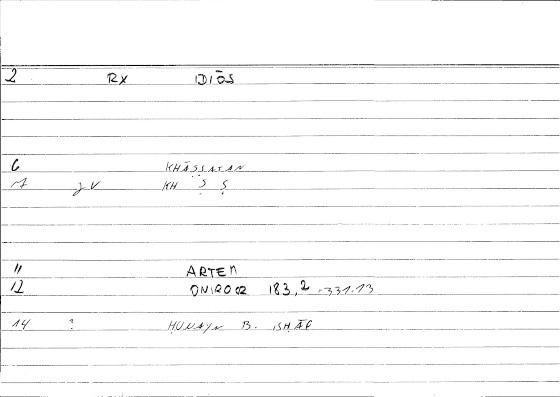 2 RX IDIŌS
6 KHĀṢṢATAN
7 gV KH Ṣ Ṣ
11 ARTEM
12 ONIROCR 183,2 - 331.13
14 ? ḤUNAYN B. ISḤĀQ